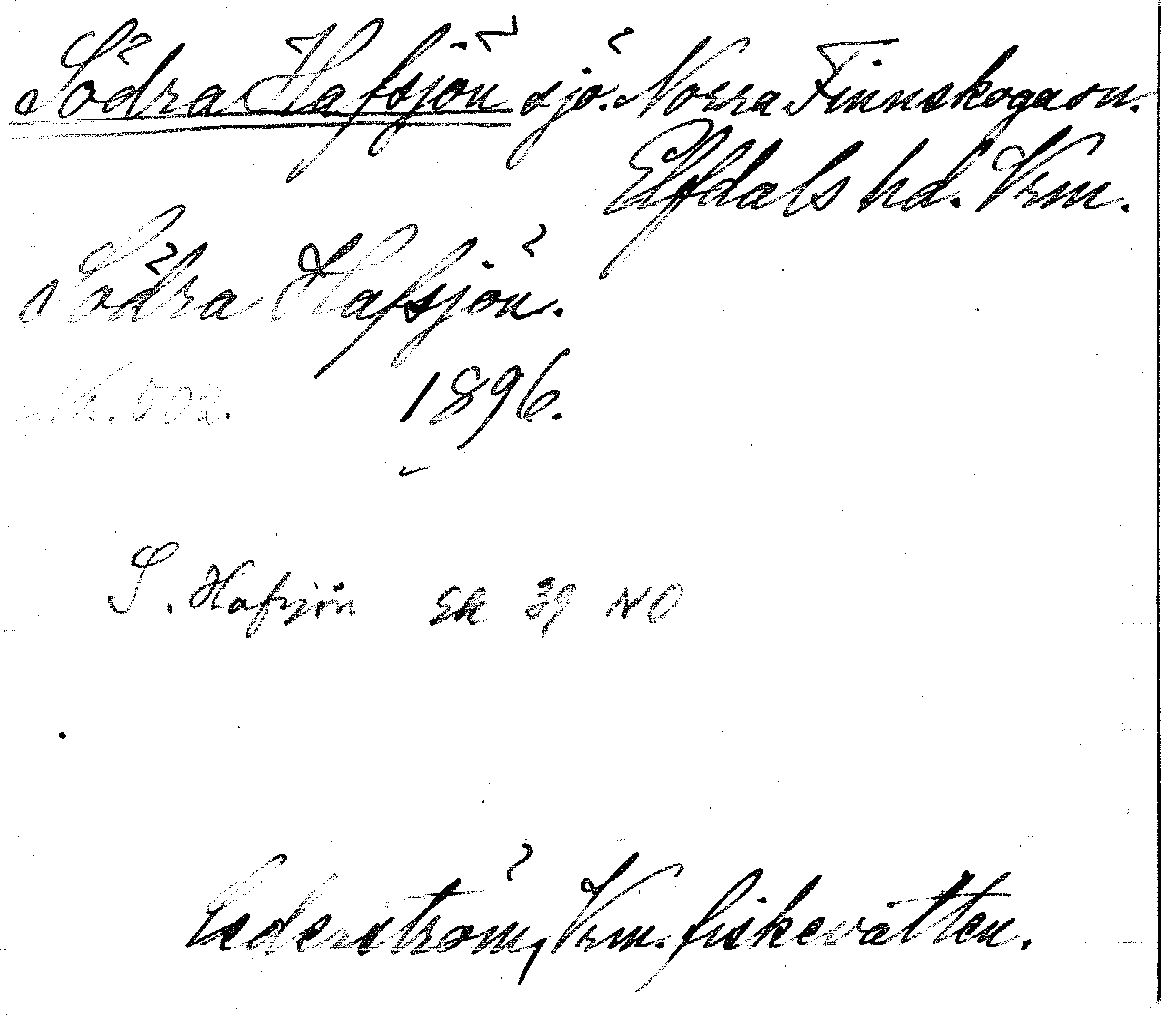 Södra Hafsjön sjö. Norra Finnskoga sn.
Elfdals hd. Vrm.
Södra Hafsjön.
502. 1896.
S. Hafsjön Sk 39 NO
Cederström, Vrm. fiskevatten.